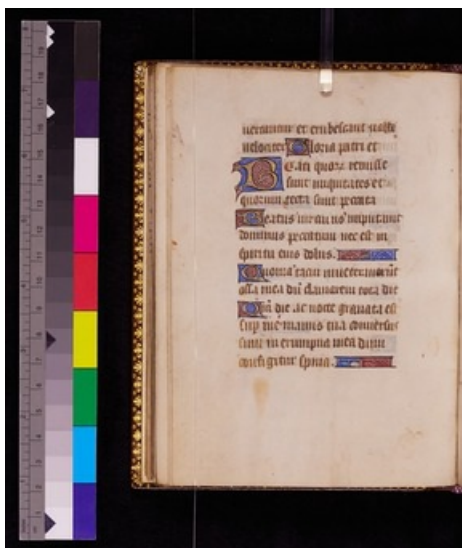 uertantur et erubescant ualde
uelociter Gloria patri et
Beati quorū remisse
sunt iniquitates et
quorum tecta sunt peccata
Beatus vir cui nō imputauit
dominus peccatum nec est in
spiritu eius dolus.
Quoniā tacui inueterauerūt
ossa mea dū clamarem tota die
Qm̄ die ac nocte grauata est
sup me manus tua conuersus
sum in erumpna mea dum
configitur spina.